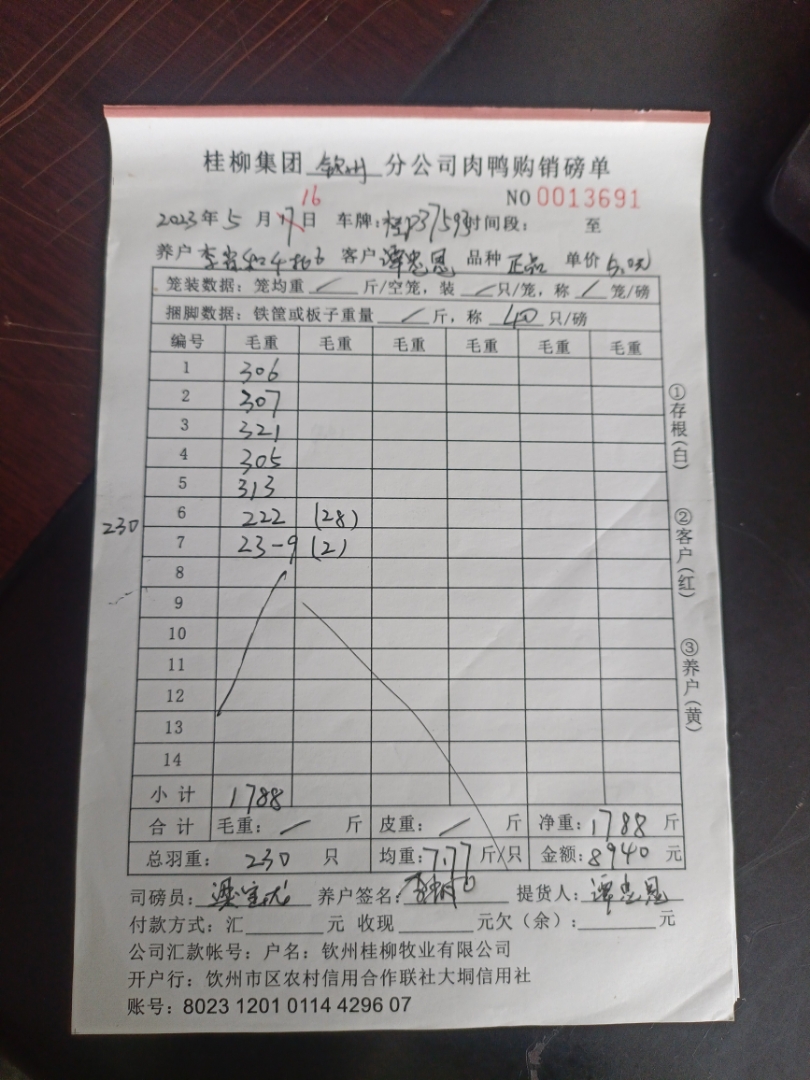 桂柳集团 钦州 分公司肉鸭购销磅单
NO 0013691
16
2023年 5 月 17 日 车牌：桂P37593 时间段： 至
养户 李 客户 谭忠恩 品种 正品 单价 5.0元
笼装数据：笼均重 / 斤/空笼，装 / 只/笼，称 / 笼/磅
捆脚数据：铁筐或板子重量 / 斤，称 40 只/磅
编号 毛重 毛重 毛重 毛重 毛重 毛重
1 306
2 307
3 321
4 305
5 313
6 222 (28)
230
7 23-9 (2)
8
9
10
11
12
13
14
小计 1788
合计 毛重： / 斤 皮重： / 斤 净重：1788 斤
总羽重： 230 只 均重：7.77 斤/只 金额：8940 元
①存根(白)
②客户(红)
③养户(黄)
司磅员： 养户签名： 提货人：谭忠恩
付款方式：汇 元 收现 元欠（余）： 元
公司汇款帐号：户名：钦州桂柳牧业有限公司
开户行：钦州市区农村信用合作联社大垌信用社
账号：8023 1201 0114 4296 07